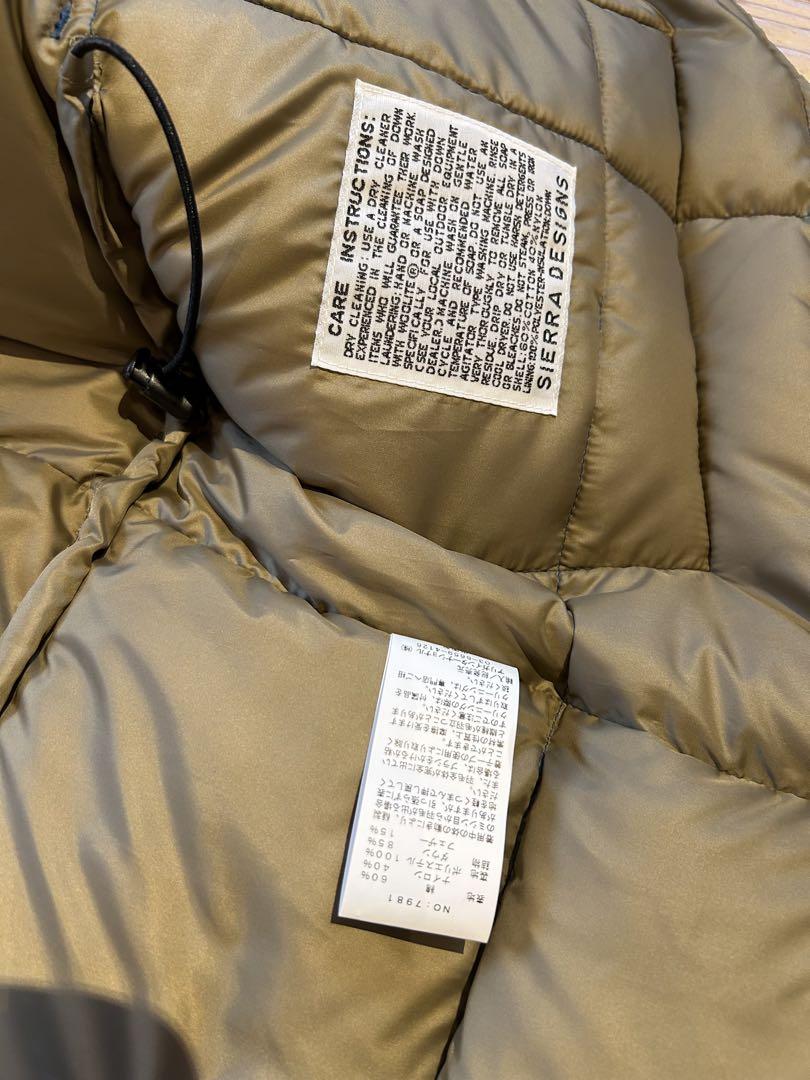 CARE INSTRUCTIONS:
DRY CLEANING: USE A DRY CLEANER
EXPERIENCED IN THE CLEANING OF DOWN
ITEMS WHO WILL GUARANTEE THER WORK
LAUNDERING: HAND OR MACHINE WASH
WITH WOOLLITE ® OR A SOAP DESIGNED
SPECIFICALLY FOR USE WITH DOWN
CSEE YOUR LOCAL OUTDOOR EQUIPMENT
DEALER.) MACHINE WASH ON GENTLE
CYCLE AND RECOMMENDED WATER
TEMPERATURE OF SOAP. DO NOT USE AN
AGITATOR TYPE WASHING MACHINE. RINSE
VERY THOROUGHLY TO REMOVE ALL SOAP
RESIDUE. DRIP DRY OR TUMBLE DRY IN A
COOL DRYER. DO NOT USE HARSH DETERGENTS
OR BLEACHES. DO NOT STEAM, PRESS OR IRON
SHELL: 60% COTTON 40% NYLON
LINING: 100% POLYESTER-INSULATION: DOWN
SIERRA DESIGNS
NO: 7981
表地 綿 60%
ナイロン 40%
裏地 ポリエステル 100%
詰物 ダウン 85%
フェザー 15%
着用中の体の動きにより、縫製
のミシン目から羽毛が出る場合
がありますが、引っ張らずに置く